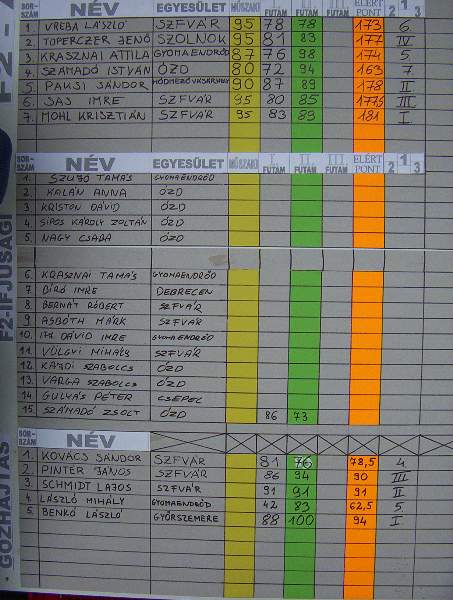 F2-A
SOR-SZÁM NÉV EGYESÜLET MŰSZAKI I. FUTAM II. FUTAM III. FUTAM ELÉRT PONT 2 1 3
1. VREBA LÁSZLÓ SZFVÁR 95 78 78 173 6
2. TOPERCZER JENŐ SZOLNOK 95 81 83 177 IV
3. KRASZNAI ATTILA GYOMAENDRŐD 87 76 98 174 5
4. SZAMADÓ ISTVÁN ÓZD 80 72 94 163 7.
5. PAKSI SÁNDOR HÓDMEZŐVÁSÁRHELY 90 87 89 178 II
6. SAS IMRE SZFVÁR 95 80 85 177,5 III
7. MOHL KRISZTIÁN SZFVÁR 95 83 89 181 I
F2-IFJUSÁGI
SOR-SZÁM NÉV EGYESÜLET MŰSZAKI I. FUTAM II. FUTAM III. FUTAM ELÉRT PONT 2 1 3
1. TAMÁS GYOMAENDRŐD
2. KALÁN ANNA ÓZD
3. KRISTON DÁVID ÓZD
4. SIPOS KÁROLY ZOLTÁN ÓZD
5. NAGY CSABA ÓZD
6. KRASZNAI TAMÁS GYOMAENDRŐD
7. BÍRÓ IMRE DEBRECEN
8. BERNÁT RÓBERT SZFVÁR
9. ASBÓTH MÁRK SZFVÁR
10. DÁVID IMRE GYOMAENDRŐD
11. VÖLGYI MIHÁLY SZFVÁR
12. SZABOLCS ÓZD
13. VARGA SZABOLCS ÓZD
14. GULYÁS PÉTER CSEPEL
15. SZÁMADÓ ZSOLT ÓZD 86 73
GŐZHAJTÁS
SOR-SZÁM NÉV
1. KOVÁCS SÁNDOR SZFVÁR 81 76 78,5 4
2. PINTÉR JÁNOS SZFVÁR 86 94 90 III
3. SCHMIDT LAJOS SZFVÁR 91 91 91 II
4. LÁSZLÓ MIHÁLY GYOMAENDRŐD 42 83 62,5 5
5. BENKŐ LÁSZLÓ GYŐRSZEMERE 88 100 94 I